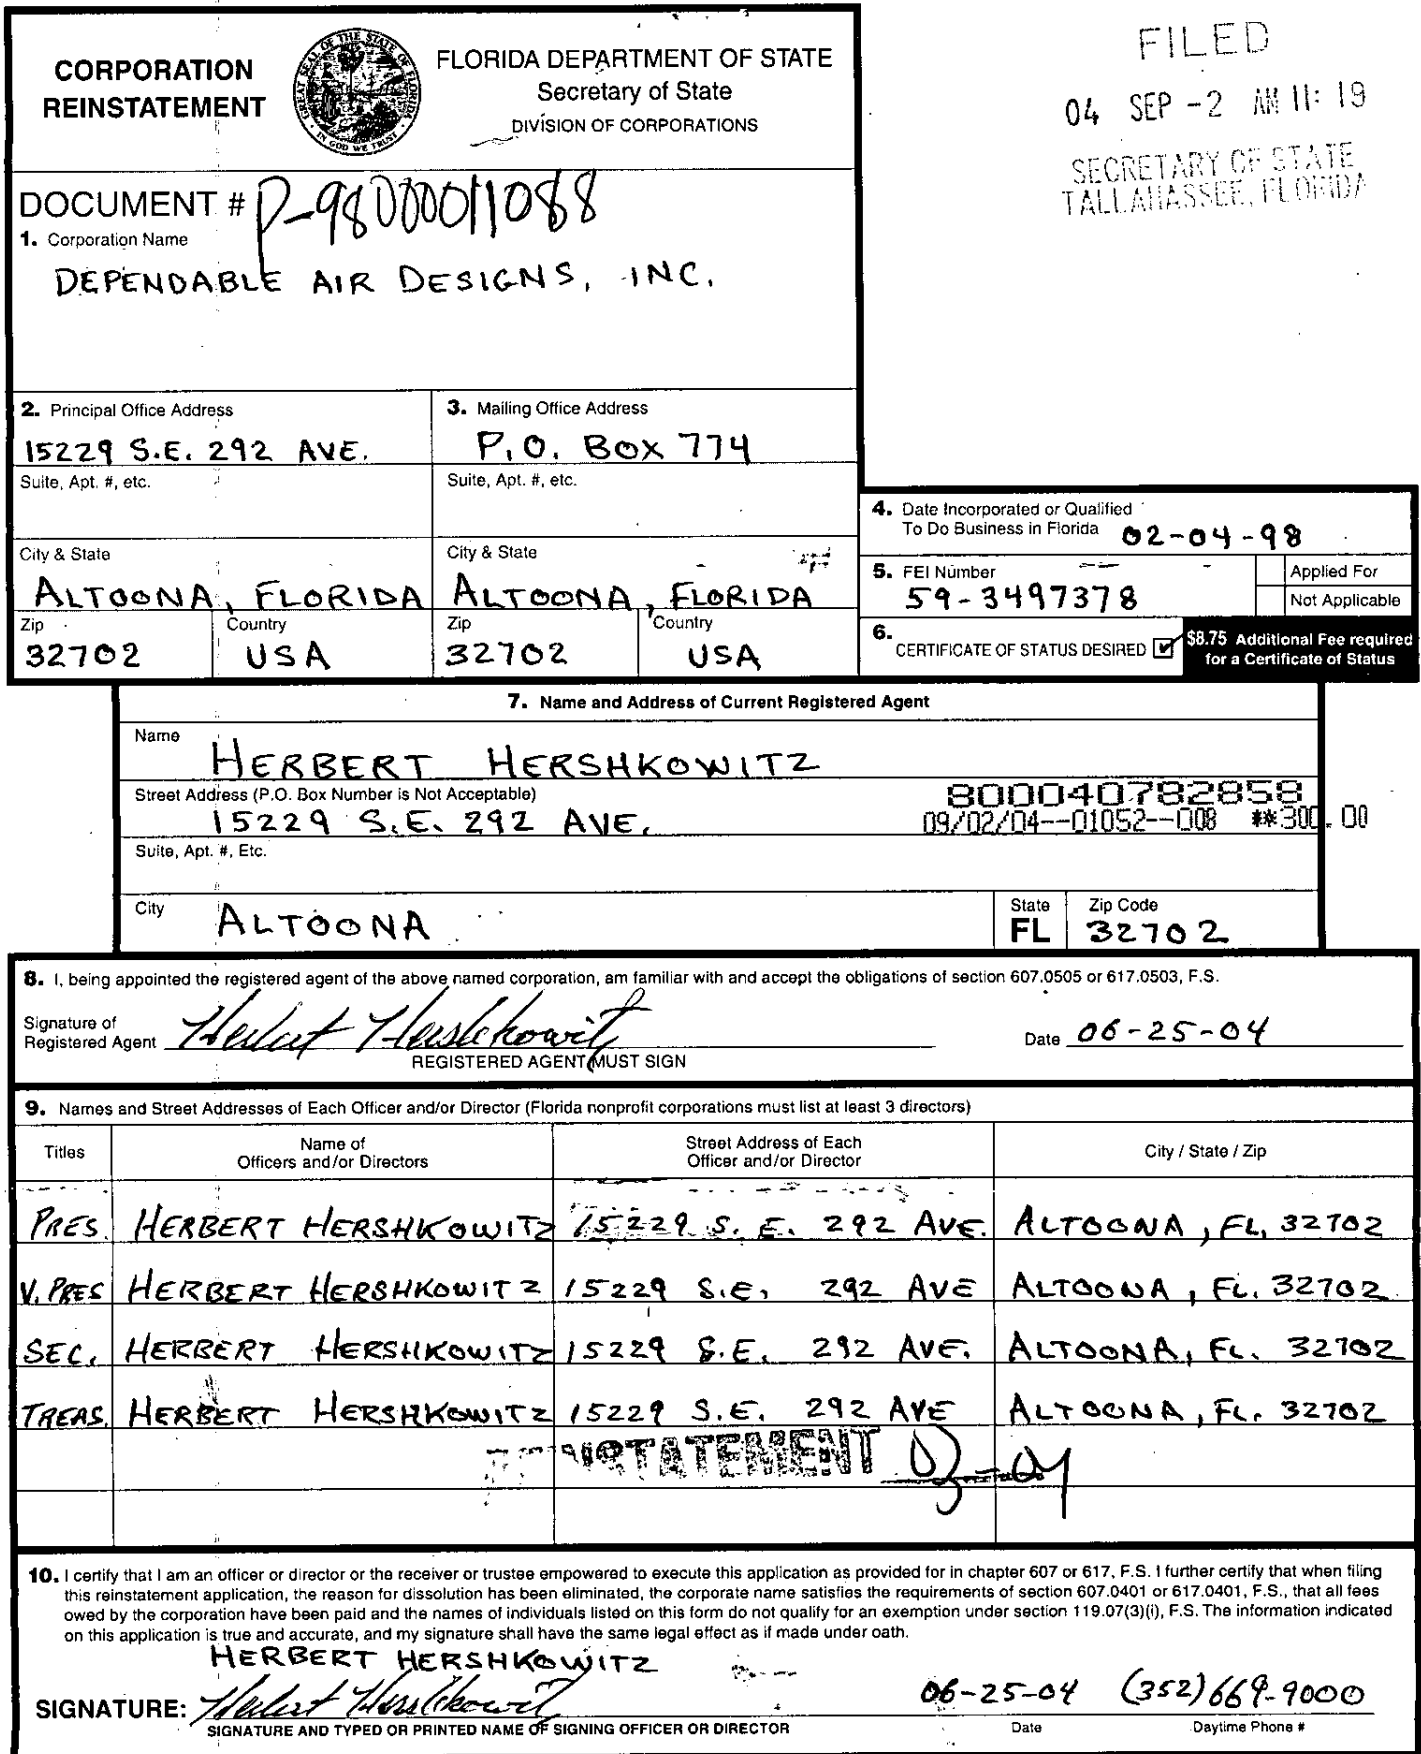 CORPORATION
REINSTATEMENT
GREAT SEAL OF THE STATE OF FLORIDA
IN GOD WE TRUST
FLORIDA DEPARTMENT OF STATE
Secretary of State
DIVISION OF CORPORATIONS
FILED
04 SEP -2 AM 11: 19
SECRETARY OF STATE
TALLAHASSEE, FLORIDA
DOCUMENT # P-98000011088
1. Corporation Name
DEPENDABLE AIR DESIGNS, INC.
2. Principal Office Address
15229 S.E. 292 AVE.
Suite, Apt. #, etc.
City & State
ALTOONA, FLORIDA
Zip Country
32702 USA
3. Mailing Office Address
P.O. BOX 774
Suite, Apt. #, etc.
City & State
ALTOONA, FLORIDA
Zip Country
32702 USA
4. Date Incorporated or Qualified
To Do Business in Florida 02-04-98
5. FEI Number
59-3497378
Applied For
Not Applicable
6. CERTIFICATE OF STATUS DESIRED ✔
$8.75 Additional Fee required
for a Certificate of Status
7. Name and Address of Current Registered Agent
Name
HERBERT HERSHKOWITZ
Street Address (P.O. Box Number is Not Acceptable)
15229 S.E. 292 AVE.
800040782858
09/02/04--01052--008 **300.00
Suite, Apt. #, Etc.
City
ALTOONA
State
FL
Zip Code
32702
8. I, being appointed the registered agent of the above named corporation, am familiar with and accept the obligations of section 607.0505 or 617.0503, F.S.
Signature of
Registered Agent Herbert Hershkowitz
REGISTERED AGENT MUST SIGN
Date 06-25-04
9. Names and Street Addresses of Each Officer and/or Director (Florida nonprofit corporations must list at least 3 directors)
Titles
Name of
Officers and/or Directors
Street Address of Each
Officer and/or Director
City / State / Zip
PRES. HERBERT HERSHKOWITZ 15229 S.E. 292 AVE. ALTOONA, FL, 32702
V. PRES HERBERT HERSHKOWITZ 15229 S.E. 292 AVE ALTOONA, FL. 32702
SEC. HERBERT HERSHKOWITZ 15229 S.E. 292 AVE. ALTOONA, FL. 32702
TREAS. HERBERT HERSHKOWITZ 15229 S.E. 292 AVE ALTOONA, FL. 32702
REINSTATEMENT 03-04
10. I certify that I am an officer or director or the receiver or trustee empowered to execute this application as provided for in chapter 607 or 617, F.S. I further certify that when filing
this reinstatement application, the reason for dissolution has been eliminated, the corporate name satisfies the requirements of section 607.0401 or 617.0401, F.S., that all fees
owed by the corporation have been paid and the names of individuals listed on this form do not qualify for an exemption under section 119.07(3)(i), F.S. The information indicated
on this application is true and accurate, and my signature shall have the same legal effect as if made under oath.
HERBERT HERSHKOWITZ
SIGNATURE: Herbert Hershkowitz 06-25-04 (352)669-9000
SIGNATURE AND TYPED OR PRINTED NAME OF SIGNING OFFICER OR DIRECTOR Date Daytime Phone #